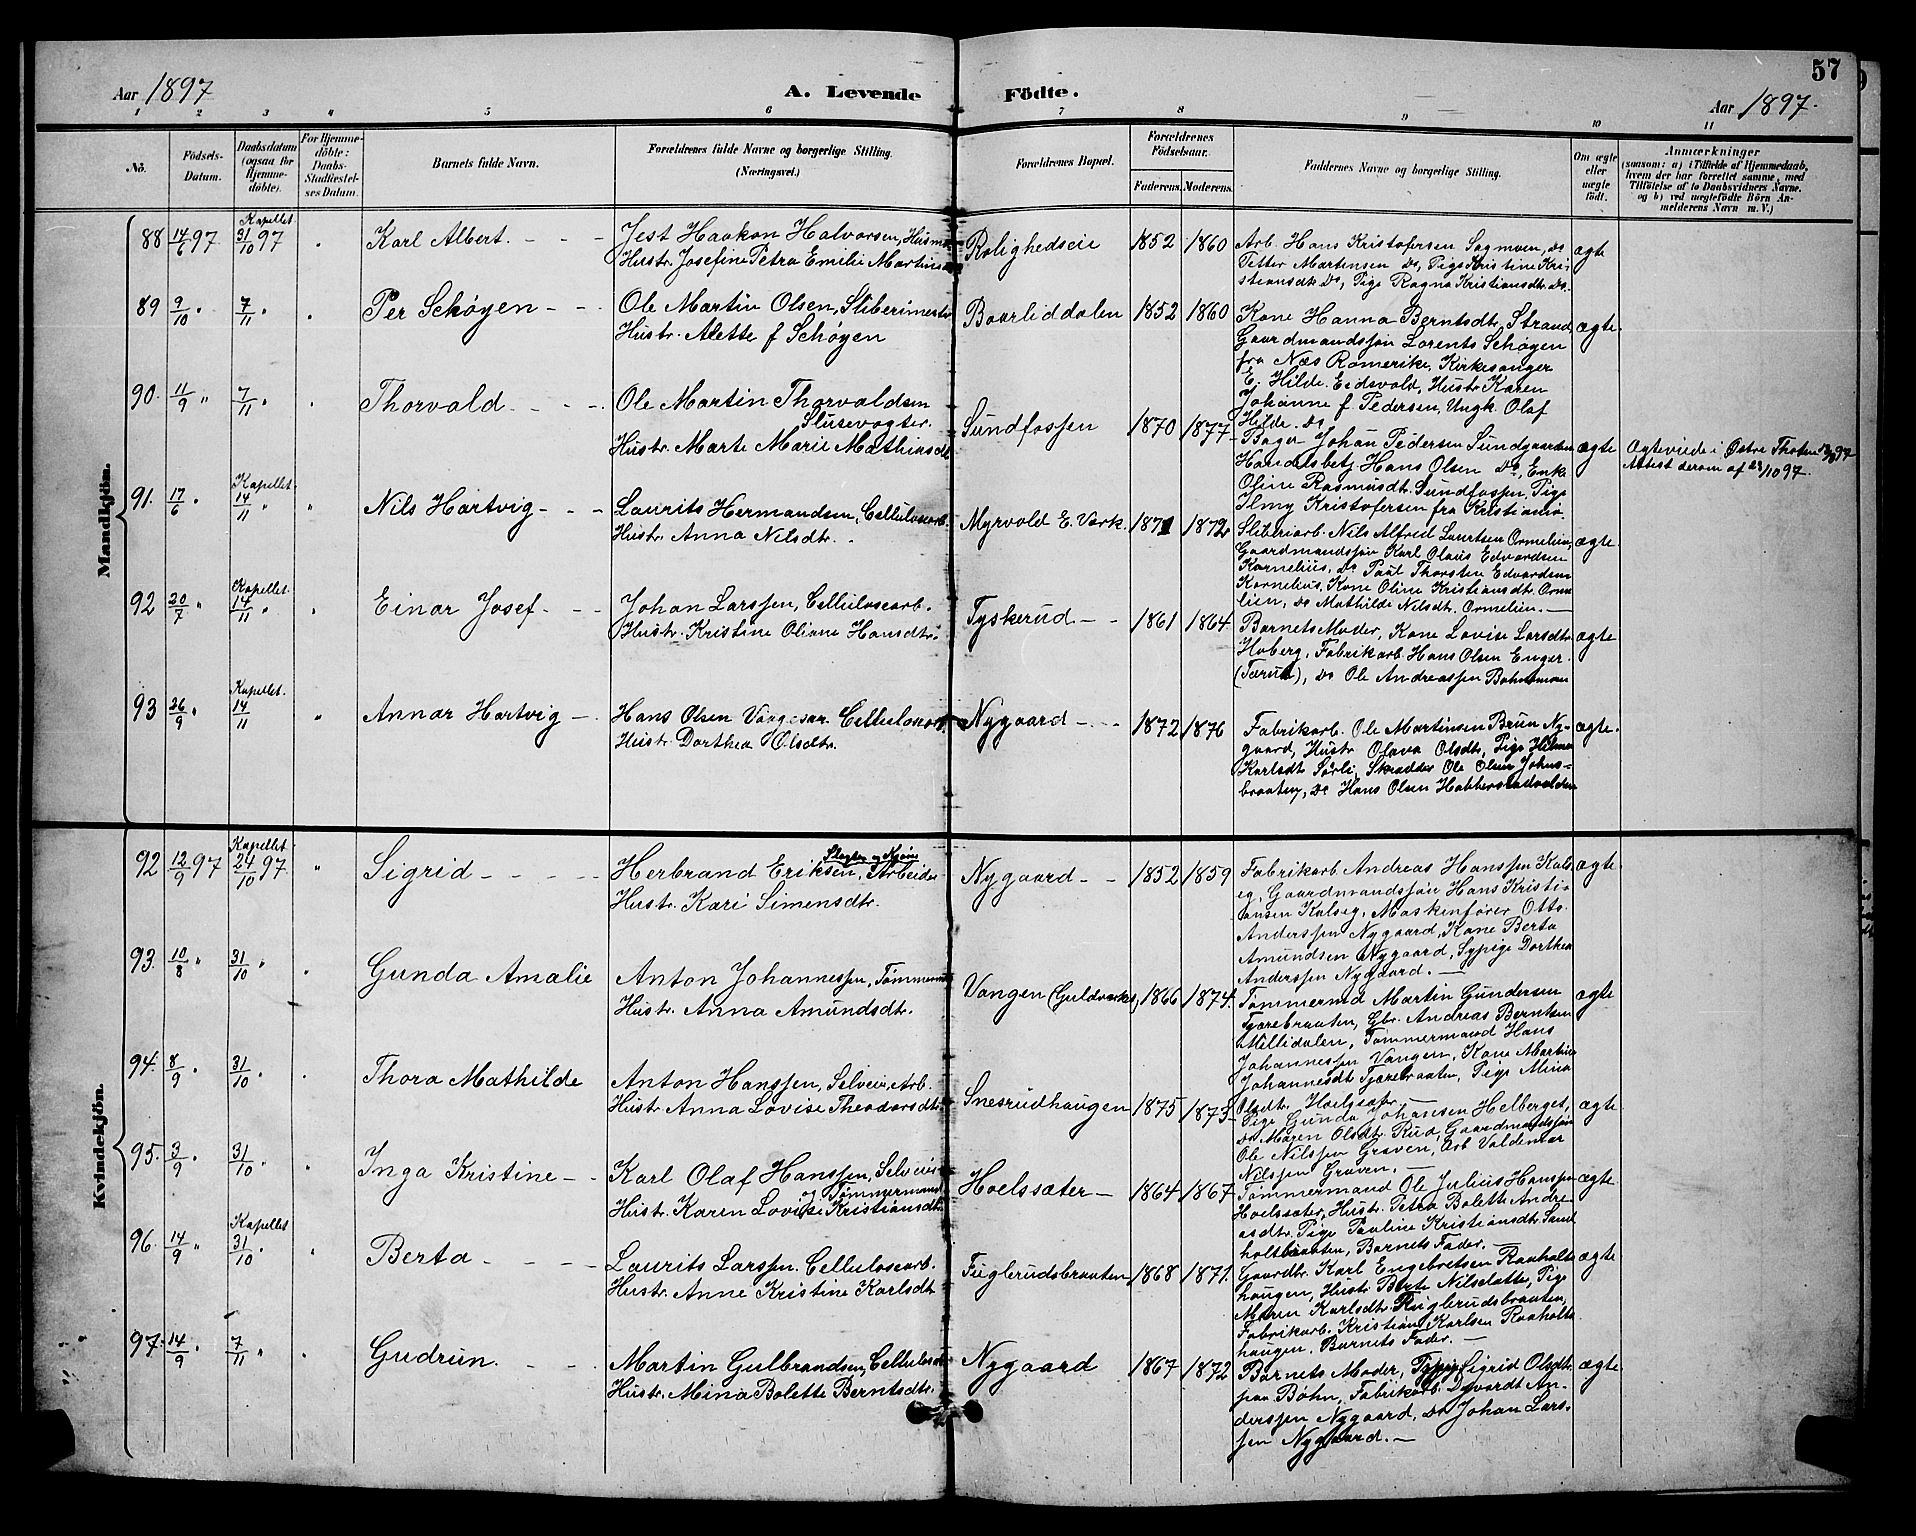 57
Aar 1897 A. Levende Födte. Aar 1897.
1 2 3 4 5 6 7 8 9 10 11
No. Födsels-Datum. Daabsdatum (ogsaa for Hjemme-döbte). For Hjemme-döbte: Daabs-Stadfæstel-ses Datum. Barnets fulde Navn. Forældrenes fulde Navne og borgerlige Stilling. (Næringsvei.) Forældrenes Bopæl. Forældrenes Födselsaar. Faderens. Moderens. Faddernes Navne og borgerlige Stilling. Om ægte eller uægte født. Anmærkninger
(saasom: a) i Tilfælde af Hjemmedaab, hvem der har forrettet samme, med Tilföielse af to Daabsvidners Navne. og b) ved uægtefödte Börn Anmelderens Navn m. V.)
Mandkjön.
88 14/6 97 Kapellet 31/10 97 " Karl Albert. - - - Jest Haakon Halvorsen, Husm.
Hustr. Josefine Petra Emilie Martins
Rolighedseie 1852 1860 Arb. Hans Kristofersen Sagmoen, do
Petter Martensen Do, Pige Kristine Kri-
stiansdt. Do, Pige Ragna Kristiansdt. do.
ægte
89 9/10 " 7/11 " " Per Schøyen - - - Ole Martin Olsen, Sliberimester
Hustr. Alette f Schøyen
Baarliddalen 1852 1860 Kone Hanna Berntsdtr, Strand,
Gaardmandssøn Lorents Schøyen
fra Næs Romerike, Kirkesanger
E. Hilde. Eidsvold, Hustr. Karen
Johanne f. Pedersen, Ungk. Olaf
Hilde. Do
ægte.
90. 11/9 " 7/11 " " Thorvald. - - - Ole Martin Thorvaldsen
Slusevogter.
Hustr. Marte Marie Mathiasdt
Sundfossen 1870 1877 Bager Johan Pedersen Sundgaarden
Handelsbetj Hans Olsen Do, Enke
Oline Rasmusdt. Sundfossen, Pige
Ilmy Kristofersen fra Kristiania.
ægte Ægteviede i Østre Thoten
Attest derom af 23/10 97.
91. 17/6 " Kapellet 14/11 " " Nils Hartvig - - - Laurits Hermandsen, Cellulosearb.
Hustr. Anna Nilsdtr.
Myrvold E. Værk. 1871 1872 Sliberiarb. Nils Alfred Lauritsen Ormelien,
Gaardmandssøn Karl Olaus Edvardsen
Kornelius, Do Paul Thorsten Edvardsen
Kornelius, Kone Oline Kristiansdt. Orme
lien, Do Mathilde Nilsdt. Ormelien. —
ægte.
92 20/7 " Kapellet. 14/11 " " Einar Josef - - - Johan Larssen, Cellulosearb.
Hustr. Kristine Oliane Hansdtr.
Tyskerud - - 1861 1864 Barnets Moder, Kone Lovise Larsdtr
Hoberg, Fabrikarb. Hans Olsen Enger.
(Tærud), Do Ole Andreassen
ægte
93 26/9 " Kapellet. 14/11 " Annar Hartvig - - Hans Olsen Cellulosearb.
Hustr. Dorthea Olsdtr.
Nygaard - - 1872 1876 Fabrikarb. Ole Martinsen Brun Ny-
gaard, Hustr Olava Olsdtr, Pige Hilma
Karlsdt Sørli, Skrædder Ole Olsen Johns-
braaten, Do Hans Olsen
ægte.
Kvindekjön.
92 12/9 97 Kapellet. 24/10 97 " Sigrid - - - - - Herbrand Eriksen, Arbeider
Hustr. Kari Simensdtr.
Nygaard - - 1852 1859 Fabrikarb. Andreas Hanssen Kals
eg, Gaardmandssøn Hans Kristi
ansen Kalseg, Maskinfører Otto
Anderssen Nygaard, Kone Berta
Amundsen Nygaard, Sypige Dorthea
Anderssen Nygaard. —
ægte
93. 10/8 " 31/10 " " Gunda Amalie Anton Johannessen, Tømmerm.
Hustr. Anna Amundsdtr.
Vangen (Guldværket) 1866 1874. Tømmermd Martin Gundersen
Tjærebraaten, Gbr. Andreas Berntsen
Millidalen, Tømmermand Hans
Johannessen Vangen, Kone Martine
Johannesdt Tjærebraaten, Pige Mina
Olsdtr. Hoelssæter. —
ægte
94. 8/9 " 31/10 " " Thora Mathilde Anton Hanssen, Selveier, Arb.
Hustr Anna Lovise Theodorsdtr.
Snesrudhaugen 1875 1873 Pige Gunda Johansen Helberget,
Do Maren Olsdtr. Rud, Gaardmandssøn
Ole Nilssen Graven, Arb Valdemar
Nilssen Graven. —
ægte
95. 3/9 " 31/10 " " Inga Kristine - - Karl Olaf Hanssen, Selveier
og Tømmermand
Hustr. Karen Lovise Kristiansdtr.
Hoelssæter - 1864 1867 Tømmermand Ole Julius Hanssen
Hoelssæter, Hustr. Petra Bolette Andre
asdtr. Pige Pauline Kristiansdtr. Sand
holtbraaten, Barnets Fader. —
ægte
96. 14/9 " Kapellet 31/10 " " Berta - - - - Laurits Larssen. Cellulosearb.
Hustr. Anne Kristine Karlsdt
Fuglerudsbraaten 1868 1871. Gaardbr. Karl Engebretsen Raaholts
haugen, Hustr Berte Nilsdatter, Pige
Maren Karlsdtr Fuglerudsbraaten,
Fabrikarb. Kristian Karlsen Raaholts
haugen, Barnets Fader. —
ægte
97. 14/9 " 7/11 " " Gudrun. - - - Martin Gulbrandsen, Cellulosearb
Hustr. Mina Bolette Berntsdtr.
Nygaard 1867 1872 Barnets Moder, Sigrid Olsdtr
paa Bøhn, Fabrikarb. Edvardt An-
derssen Nygaard, Do Johan Lars-
sen Nygaard. —
ægte